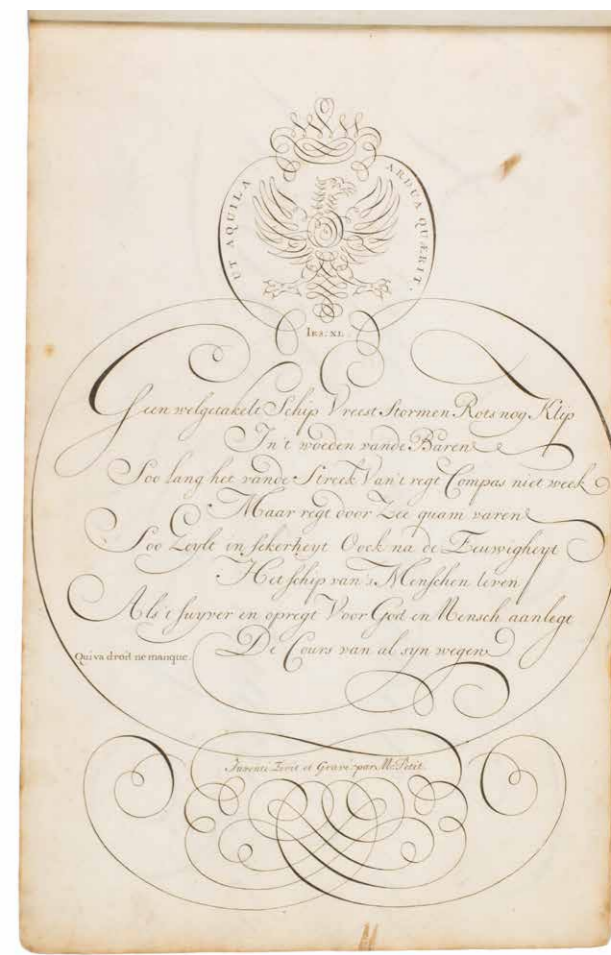 UT AQUILA ARDUA QUÆRIT.
IES: XL.
Geen welgetakelt Schip Vreest Stormen Rots nog Klip
In't woeden vande Baren
Soo lang het vande Streek Van't regt Compas niet week
Maar regt door Zee quam varen
Soo Zeylt in sekerheyt Oock na de Eeuwigheyt
Het schip van's Menschen leven
Als't suyver en opregt Voor God en Mensch aanlegt
De Cours van al syn wegen
Qui va droit ne manque.
Inventé Ecrit et Gravé par M: Petit.